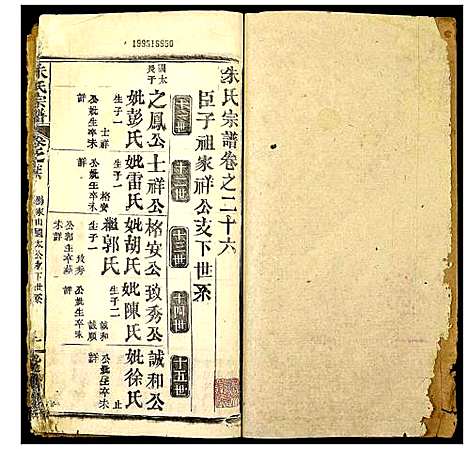 199515950
朱氏宗譜卷之二十六
臣子祖家祥公支下世系
十一世
十二世
十三世
十四世
十五世
國太
長子
之鳳公
妣彭氏
生子一
士祥
公妣生卒未
詳
士祥公
妣雷氏
生子一
格安
公妣生卒未
詳
格安公
妣胡氏
繼郭氏
生子一
致秀
公郭生卒葬
未詳
致秀公
妣陳氏
生子二
誠和
誠順
公妣生卒未
詳
誠和公
妣徐氏
止
公妣生卒未
詳
朱氏宗譜
國太公支下世系